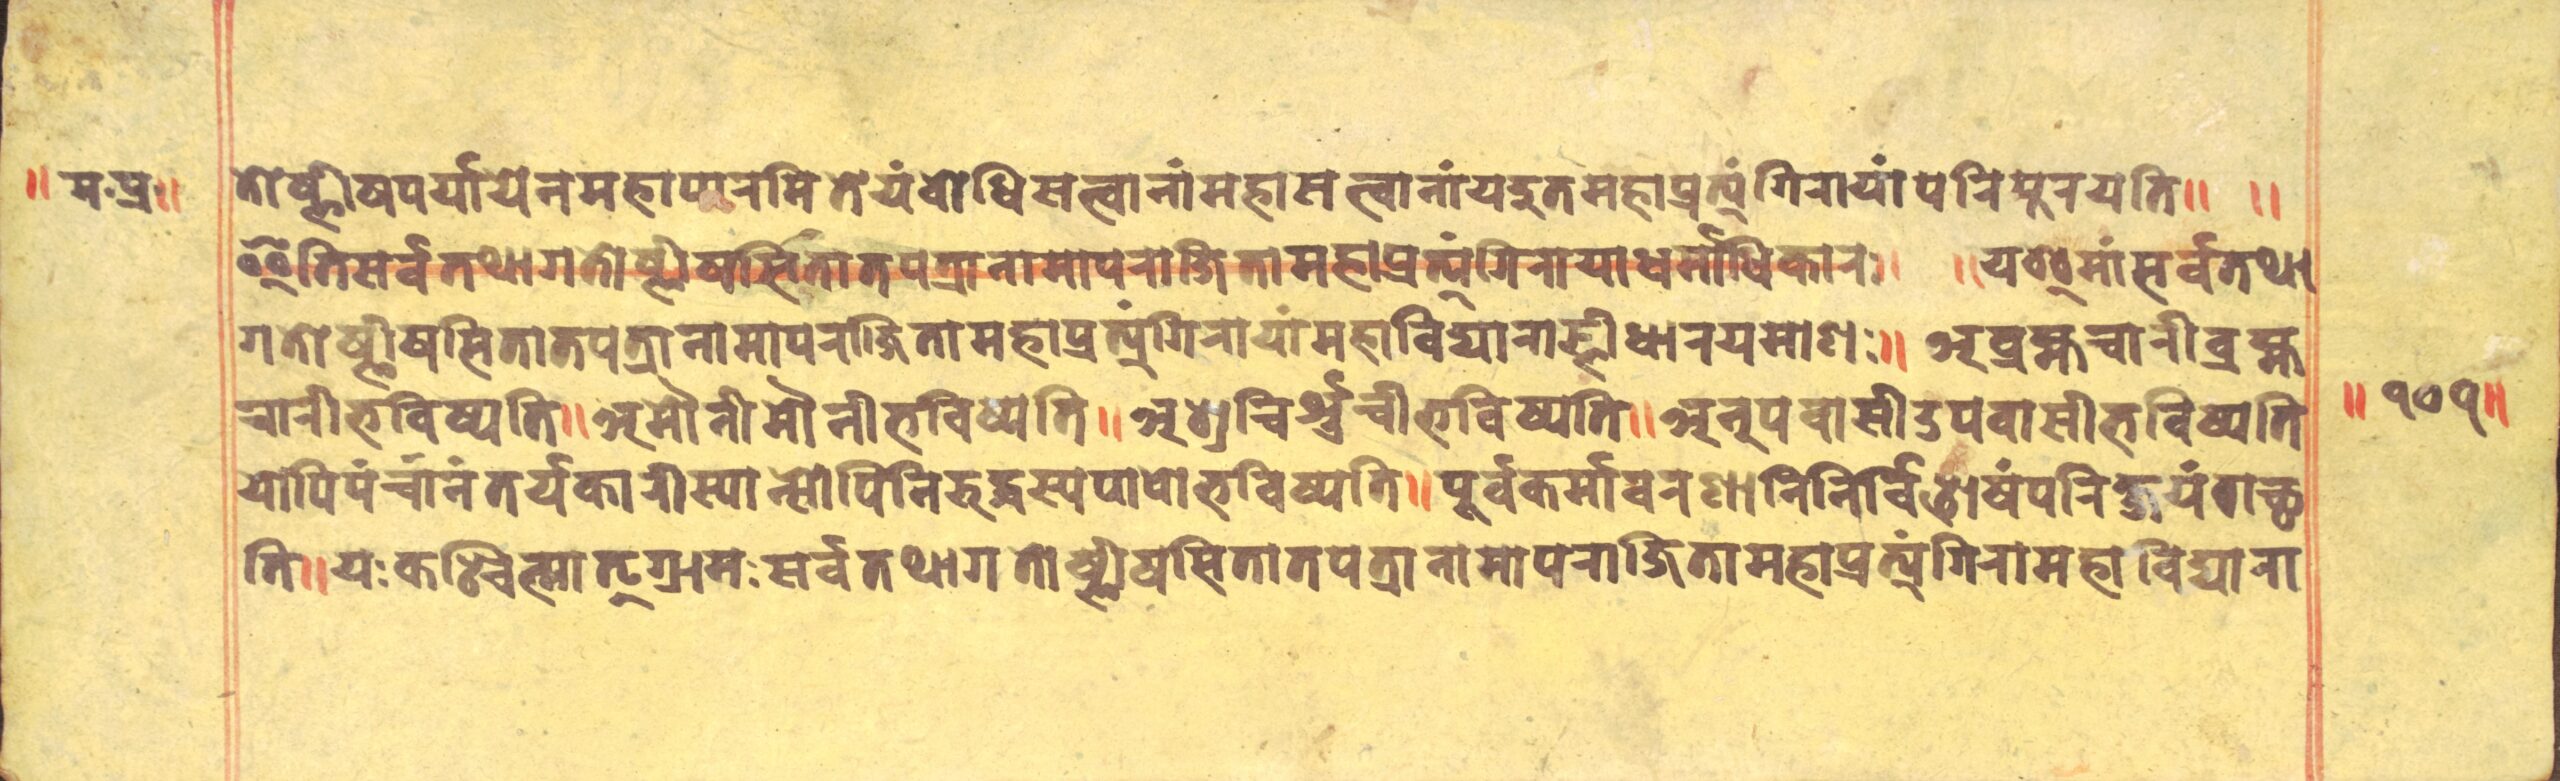 ॥ म·प्र ॥
तोष्णीषपर्यायेनमहापारमितेयंबोधिसत्वानांमहासत्वानांयदुतमहाप्रत्यंगिरायांपरिपूरयति॥ ॥
इतिसर्वतथागतोष्णीषसितातपत्रानामापराजितामहाप्रत्यंगिरायाधर्माधिकारः॥ ॥यश्मांसर्वतथा
गतोष्णीषसितातपत्रानामापराजितामहाप्रत्यंगिरायांमहाविद्याराज्ञीधारयमाणः॥ अब्रह्मचारीब्रह्म
चारीभविष्यति॥अमौनीमौनीभविष्यति॥अशुचिर्शुचीभविष्यति॥अनुपवासीउपवासीभविष्यति
योपिपंचानंतर्यकारीस्यान्सोपिनिरुद्धस्यपापोभविष्यति॥पूर्वकर्मावरणानिनिर्विशेषंपरिक्षयंगच्छ
ति॥यःकश्चित्मातृग्रामःसर्वतथागतोष्णीषसितातपत्रानामापराजितामहाप्रत्यंगिरामहाविद्यारा
॥ १७१॥